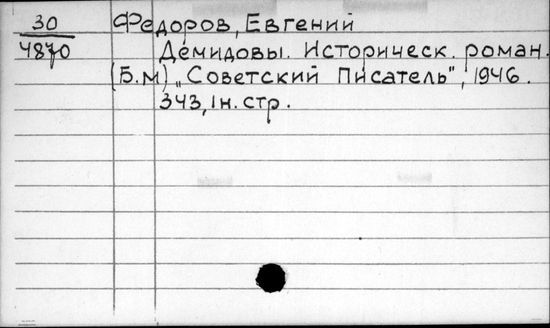 30 Федоров, Евгений
4870 Демидовы. Историческ. роман.
(Б.м) „Советский Писатель", 1946.
343, 1н. стр.